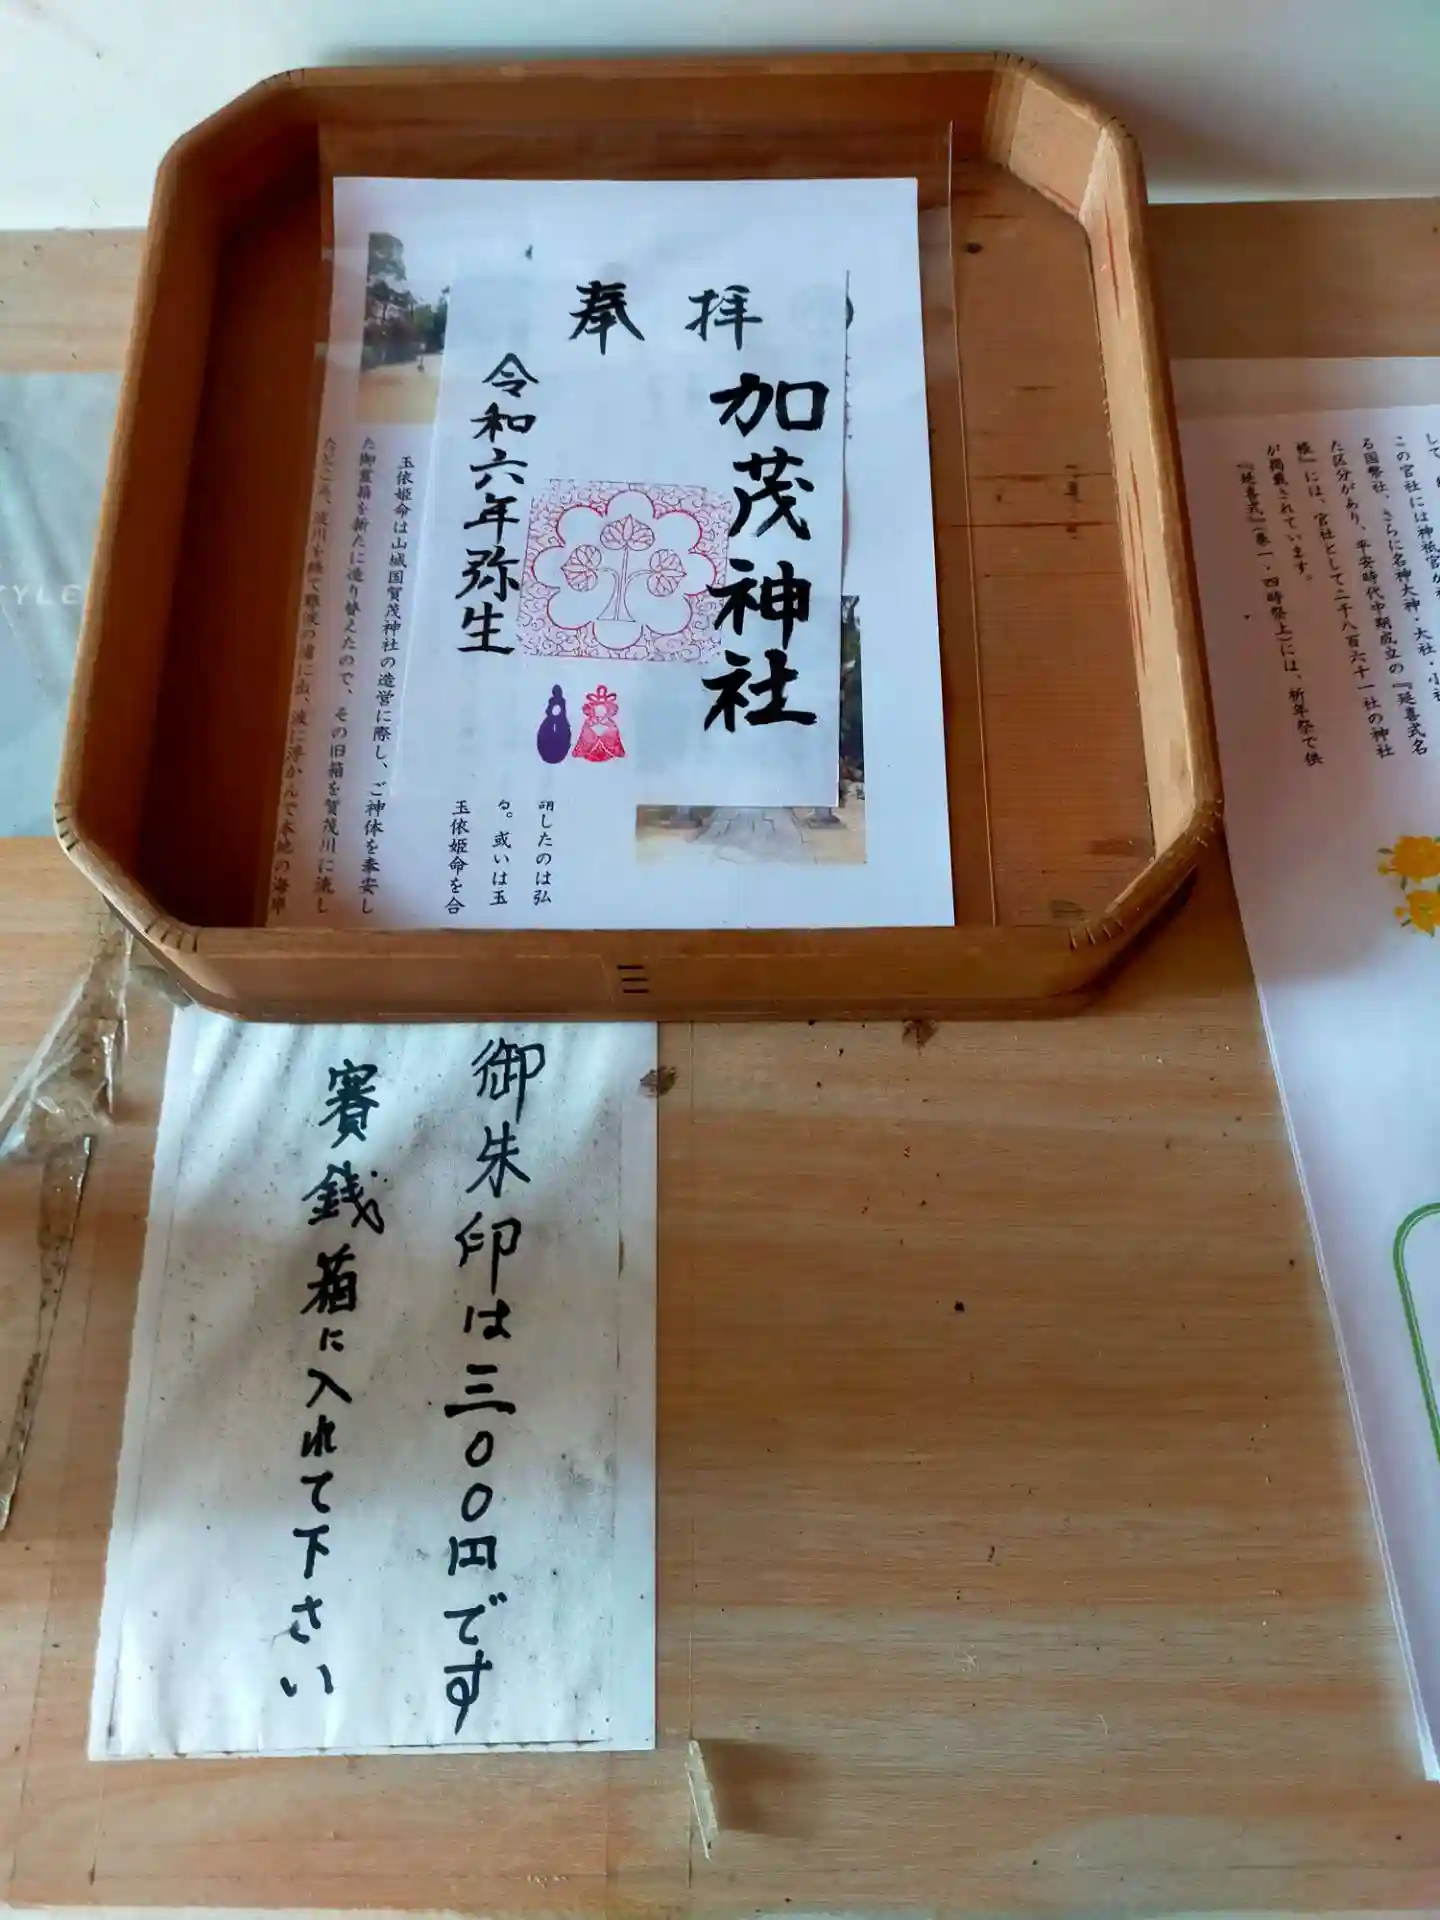 奉拝
加茂神社
令和六年弥生
玉依姫命は山城国賀茂神社の造営に際し、ご神体を奉安し
た御霊箱を新たに造り替えたので、その旧箱を賀茂川に流し
たところ、淀川を経て難波の浦に出、波に浮かんで本地の海岸
したのは弘
る。或いは玉
玉依姫命を合
御朱印は三〇〇円です
賽銭箱に入れて下さい
して
この官社には神祇官が
る国幣社、さらに名神大神・大社・小社
た区分があり、平安時代中期成立の『延喜式名
帳』には、官社として二千八百六十一社の神社
が掲載されています。
『延喜式』(巻一・四時祭上)には、祈年祭で供
YLE